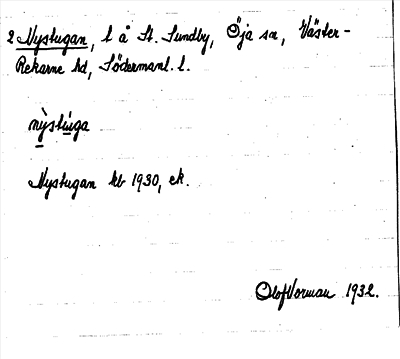 2 Nystugan, l å St. Sundby, Öja sn, Väster-
Rekarne hd, Södermanl. l.
nỳstúga
Nystugan kb 1930, ek.
Olof Norman 1932.